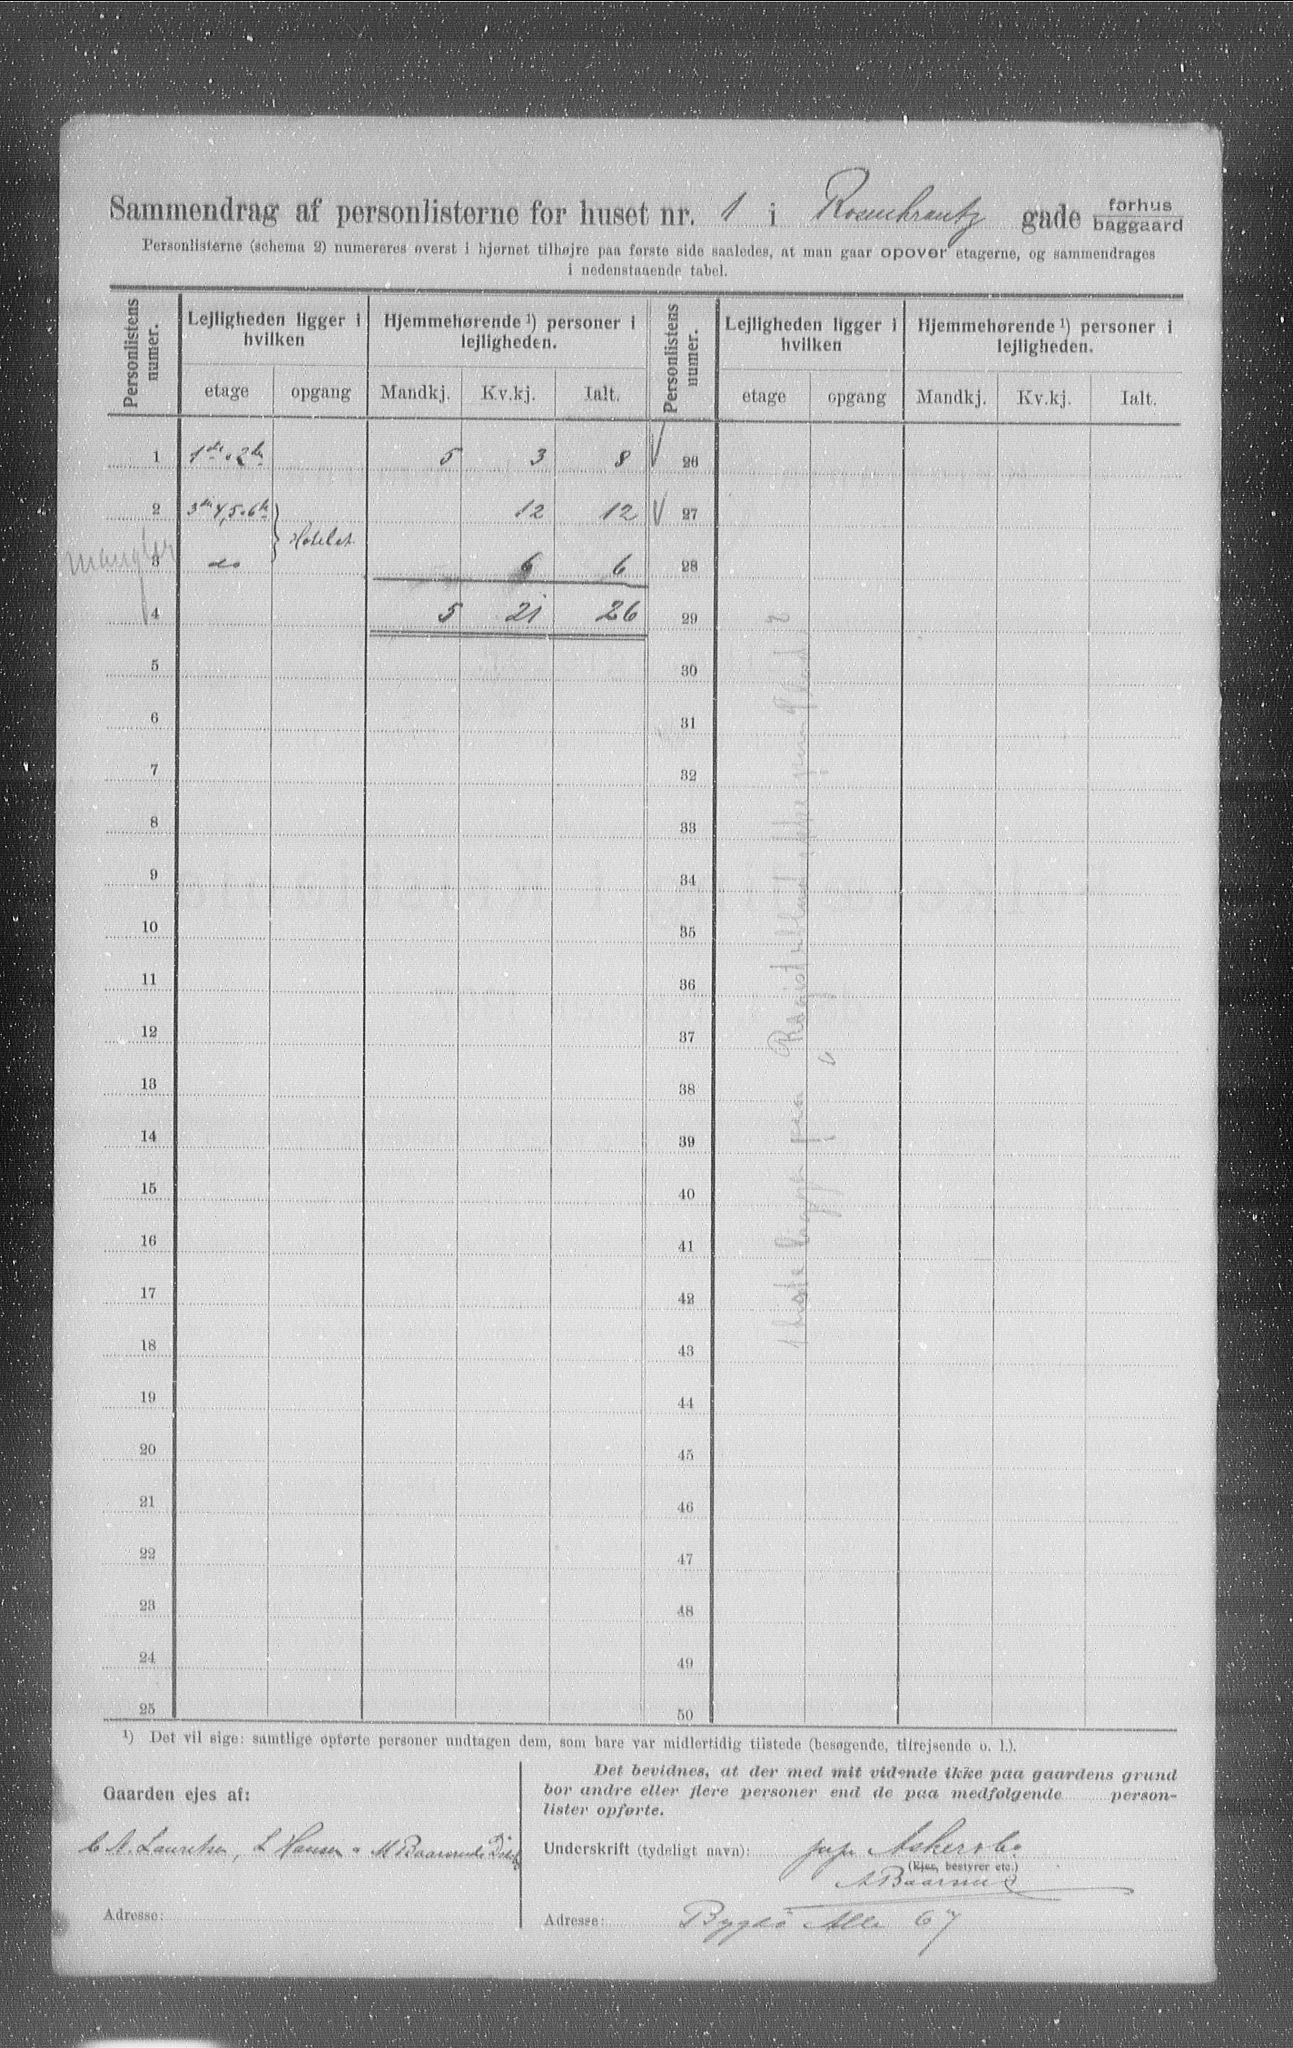 Sammendrag af personlisterne for huset nr. 1 i Rosenkrantz gade forhus baggaard
Personlisterne (schema 2) numereres øverst i hjørnet tilhøjre paa første side saaledes, at man gaar opover etagerne, og sammendrages
i nedenstaaende tabel.
Personlistens numer. Lejligheden ligger i hvilken Hjemmehørende ¹) personer i lejligheden. Personlistens numer. Lejligheden ligger i hvilken Hjemmehørende ¹) personer i lejligheden.
etage opgang Mandkj. Kv.kj. Ialt. etage opgang Mandkj. Kv.kj. Ialt.
1 1ste. 2den 5 3 8 V 26
2 3die 4, 5. 6te Hotelet 12 12 V 27
mangler 3 do 6 6 28
4 5 21 26 29
5 30
6 31
7 32
8 33
9 34
10 35
11 36
12 37
13 38
14 39
15 40
16 41
17 42
18 43
19 44
20 45
21 46
22 47
23 48
24 49
25 50
¹) Det vil sige: samtlige opførte personer undtagen dem, som bare var midlertidig tilstede (besøgende, tilrejsende o. l.).
Gaarden ejes af:
L. Hansen
Adresse:
Det bevidnes, at der med mit vidende ikke paa gaardens grund
bor andre eller flere personer end de paa medfølgende person-
lister opførte.
Underskrift (tydeligt navn):
(Ejer, bestyrer etc.)
Adresse: Bygdö Alle 67